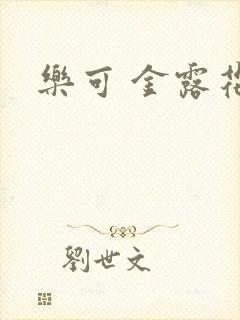 樂可 金露花
劉世文